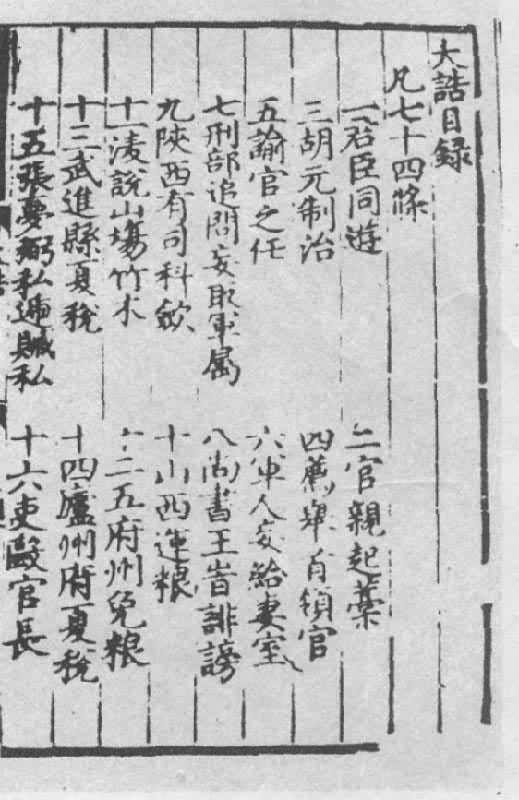 大誥目錄
凡七十四條
一君臣同遊 二官親起藁
三胡元制治 四薦舉首領官
五諭官之任 六軍人妄給妻室
七刑部追問妄取軍属 八尚書王峕誹謗
九陝西有司科歛 十山西運粮
十一淩說山場竹木 十二五府州免粮
十三武進縣夏稅 十四廬州府夏稅
十五張夢弼私遞贓私 十六吏毆官長